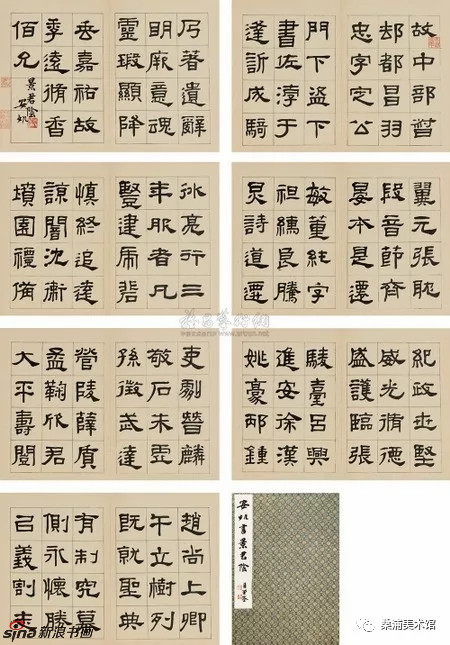 故中部督
郵都昌羽
忠字定公
門下盜下
書佐淳于
逢訢成騎
翼元張耽
段音節齊
晏本是遷
敏董純字
祖繻良騰
炅詩道遷
紀政世堅
威光脩德
盛護臨張
陵臺呂興
進安徐漢
姚豪邴鍾
吏劇晉麟
敬石朱
孫徵武達
營陵薛質
孟鞠欣君
大平壽閭
趙尚上卿
午立樹列
既就聖典
有制究墓
側永懷勝
召義割志
行三
年服者凡
豎建虎
慎終追遠
諒闇沈
墳園禮備
乃著遺辭
明厥意魂
靈瑕顯降
垂嘉祐故
季遠脩香
佰允
景君陰
書景君陰
sina新浪书画
桑浦美术馆